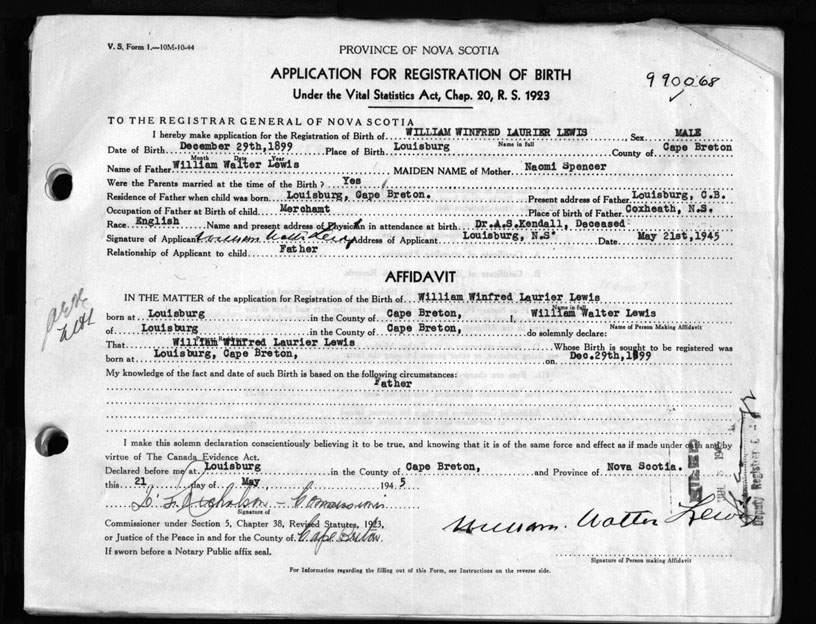 V. S. Form 1.—10M-10-44
PROVINCE OF NOVA SCOTIA
APPLICATION FOR REGISTRATION OF BIRTH
990068
Under the Vital Statistics Act, Chap. 20, R. S. 1923
TO THE REGISTRAR GENERAL OF NOVA SCOTIA
I hereby make application for the Registration of Birth of WILLIAM WINFRED LAURIER LEWIS, Sex MALE
Name in full
Date of Birth December 29th,1899 Place of Birth Louisburg County of Cape Breton
Month Date Year
Name of Father William Walter Lewis MAIDEN NAME of Mother Naomi Spencer
Were the Parents married at the time of the Birth? Yes
Residence of Father when child was born Louisburg, Cape Breton. Present address of Father Louisburg, C.B.
Occupation of Father at Birth of child Merchamt Place of birth of Father Coxheath, N.S.
Race English Name and present address of Physician in attendance at birth Dr.A.S.Kendall, Deceased
Signature of Applicant William Walter Lewis Address of Applicant Louisburg, N.S. Date May 21st,1945
Relationship of Applicant to child Father
AFFIDAVIT
IN THE MATTER of the application for Registration of the Birth of William Winfred Laurier Lewis
Name in full
born at Louisburg in the County of Cape Breton, I, William Walter Lewis
Name of Person Making Affidavit
of Louisburg in the County of Cape Breton, do solemnly declare:
That William Winfred Laurier Lewis Whose Birth is sought to be registered was
born at Louisburg, Cape Breton, on Dec.29th,1899
My knowledge of the fact and date of such Birth is based on the following circumstances:
Father
I make this solemn declaration conscientiously believing it to be true, and knowing that it is of the same force and effect as if made under oath and by
virtue of The Canada Evidence Act.
Declared before me at Louisburg in the County of Cape Breton, and Province of Nova Scotia.
this 21 day of May 1945
Signature of
Commissioner under Section 5, Chapter 38, Revised Statutes, 1923,
or Justice of the Peace in and for the County of Cape Breton.
If sworn before a Notary Public affix seal.
William Walter Lewis
Signature of Person making Affidavit
Deputy Registrar
For Information regarding the filling out of this Form, see Instructions on the reverse side.